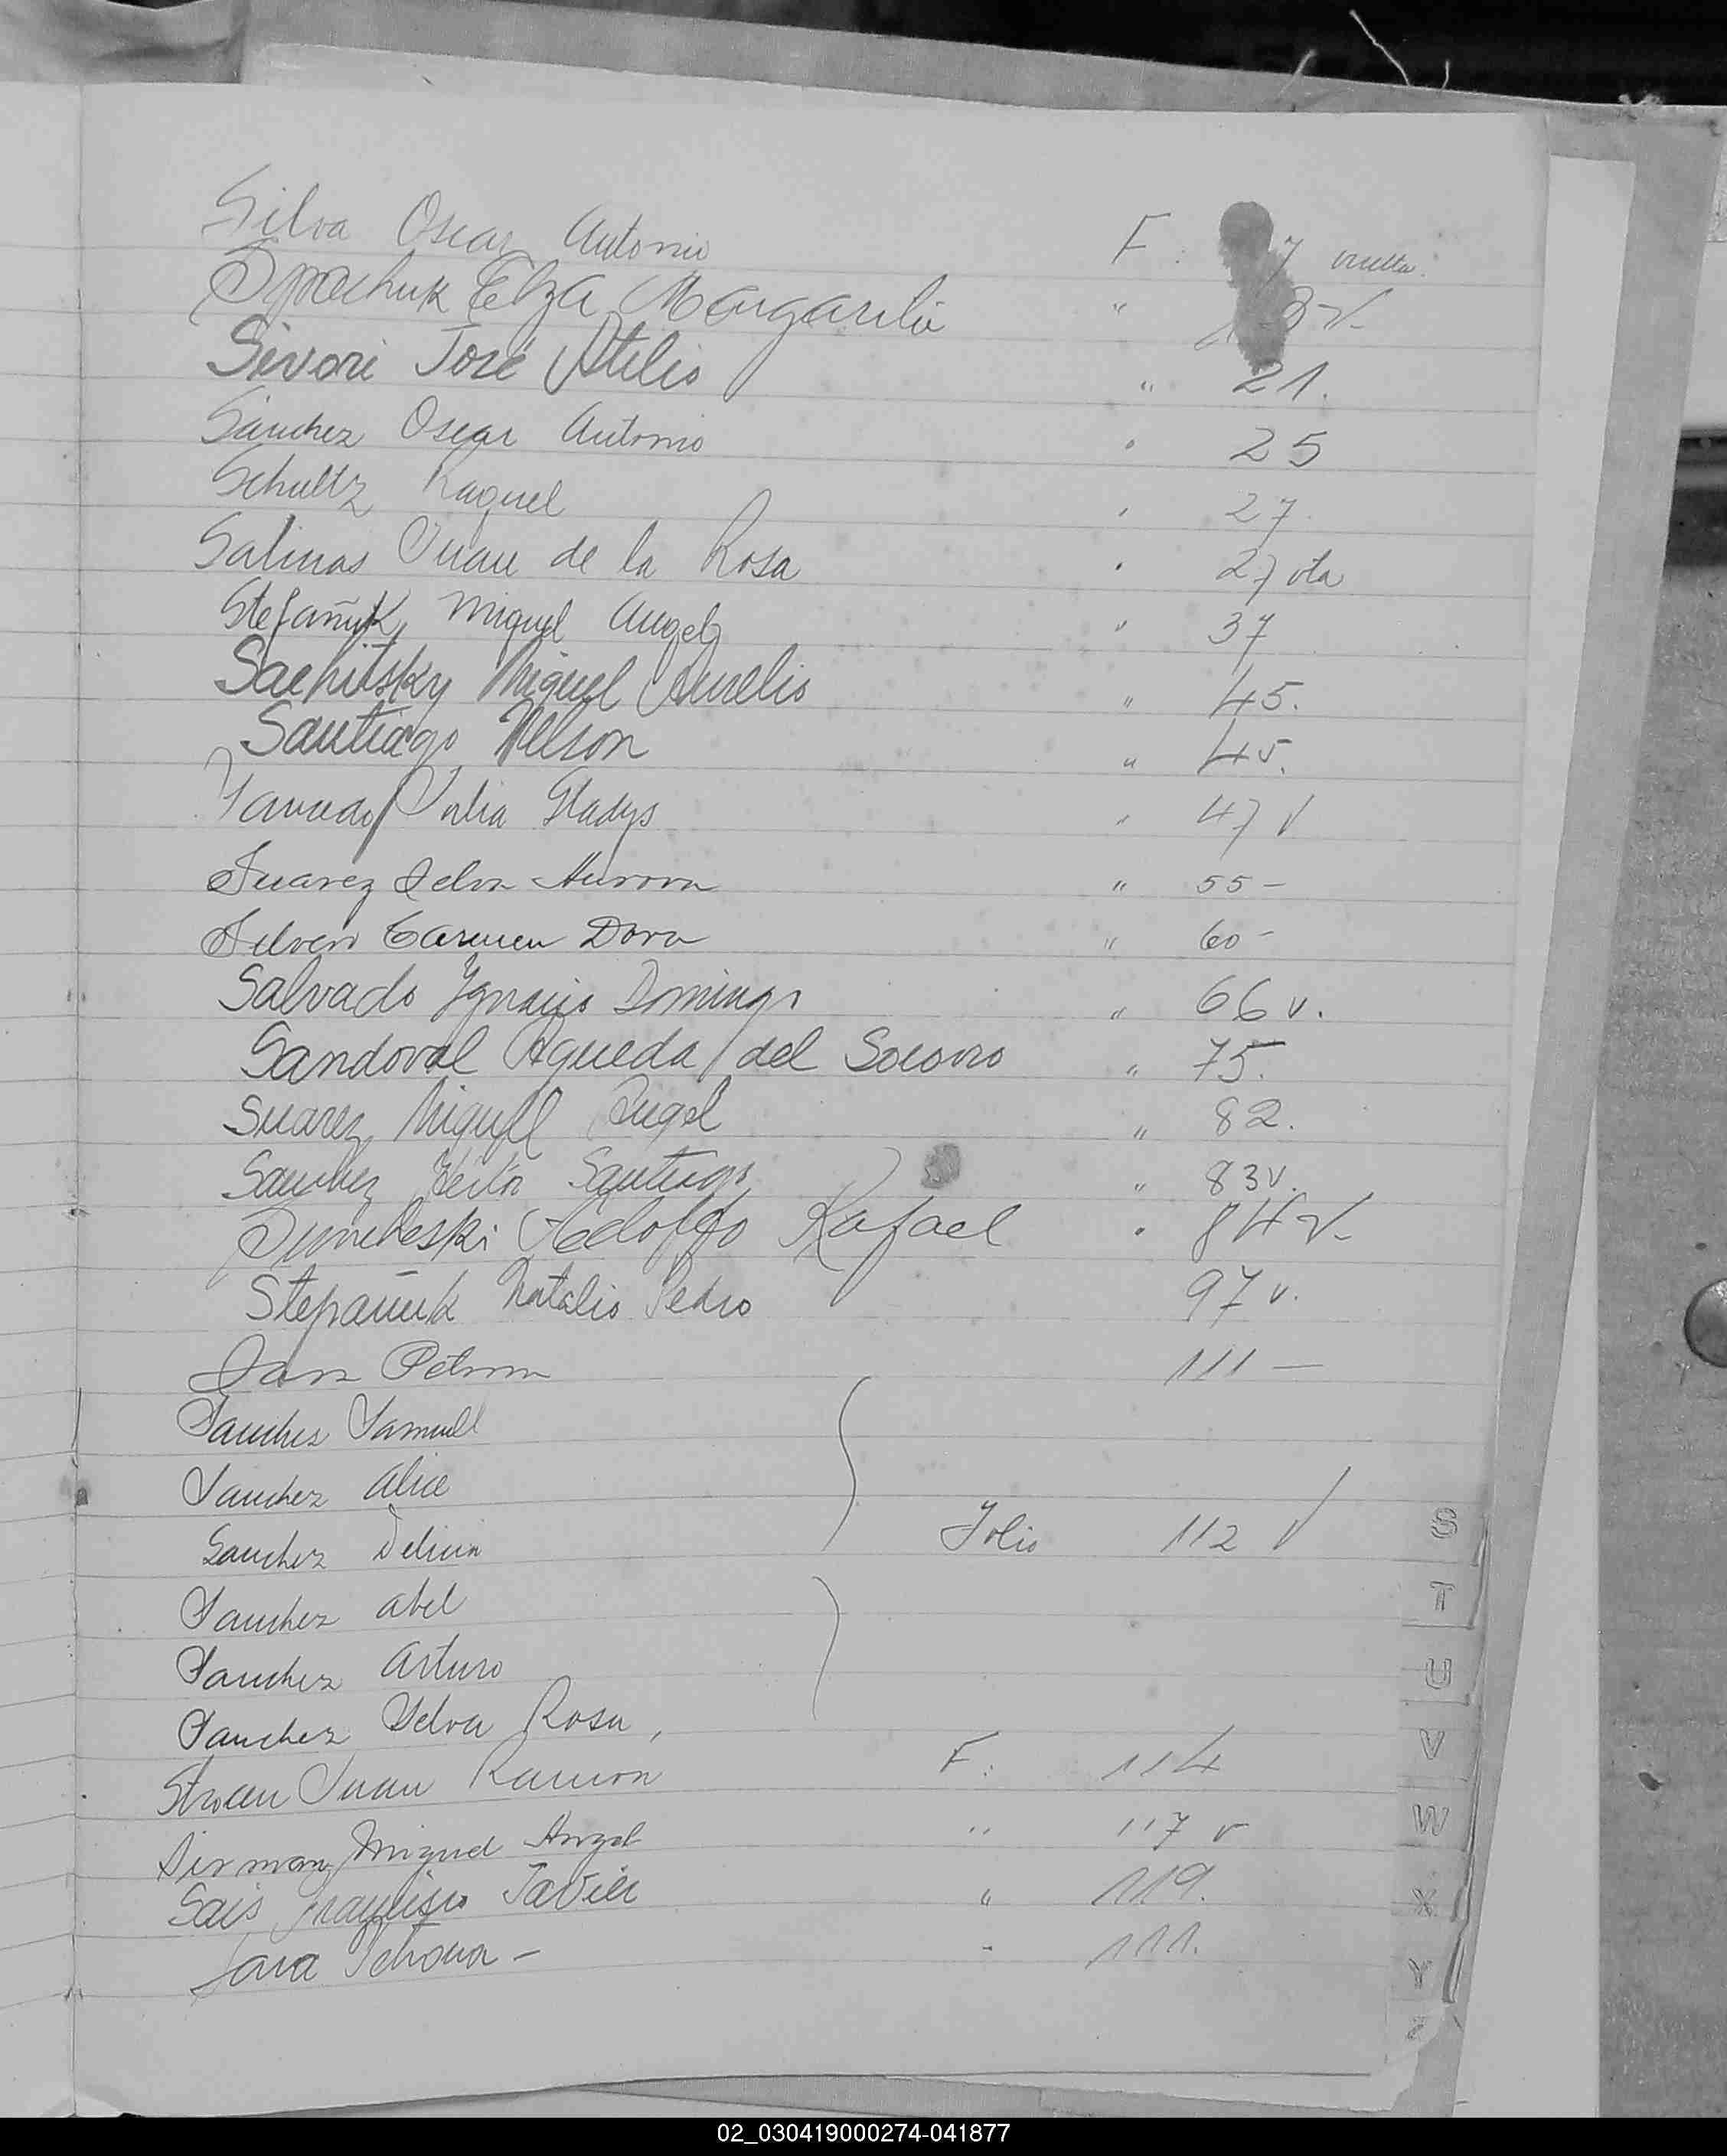 Silva Oscar Antonio F. 7 vuelta.
Elza Margarita " 3 v-
Sivori José Atilio " 21.
Sánchez Oscar Antonio " 25
Schultz Raquel " 27.
Salinas Juan de la Rosa " 27 vta
Stefañuk Miguel Angel " 37
Sachitsky Miguel Aurelio " 45.
Santiago Nelson " 45.
Julia Gladys " 47 v
Suarez Selva Aurora " 55 -
Carmen Dora " 60 -
Salvado Ygnacio Domingo " 66 v.
Sandoval Agueda del Socorro " 75.
Suarez Miguel Angel " 82.
Sanchez Héctor Santiago " 83 v.
Adolfo Rafael " 84 v-
Stepañuk Natalio Pedro 97 v.
Sara Petrona 111 -
Sanchez Samuel
Sanchez Alice
Sanchez Delicia Folio 112 v
Sanchez Abel
Sanchez Arturo
Sanchez Selva Rosa,
Juan Ramon F: 114
Miguel Angel " 117 v
Sais Francisco Javier " 119.
Sara Petrona - " 111.
S
T
U
V
W
X
Y
Z
02_030419000274-041877